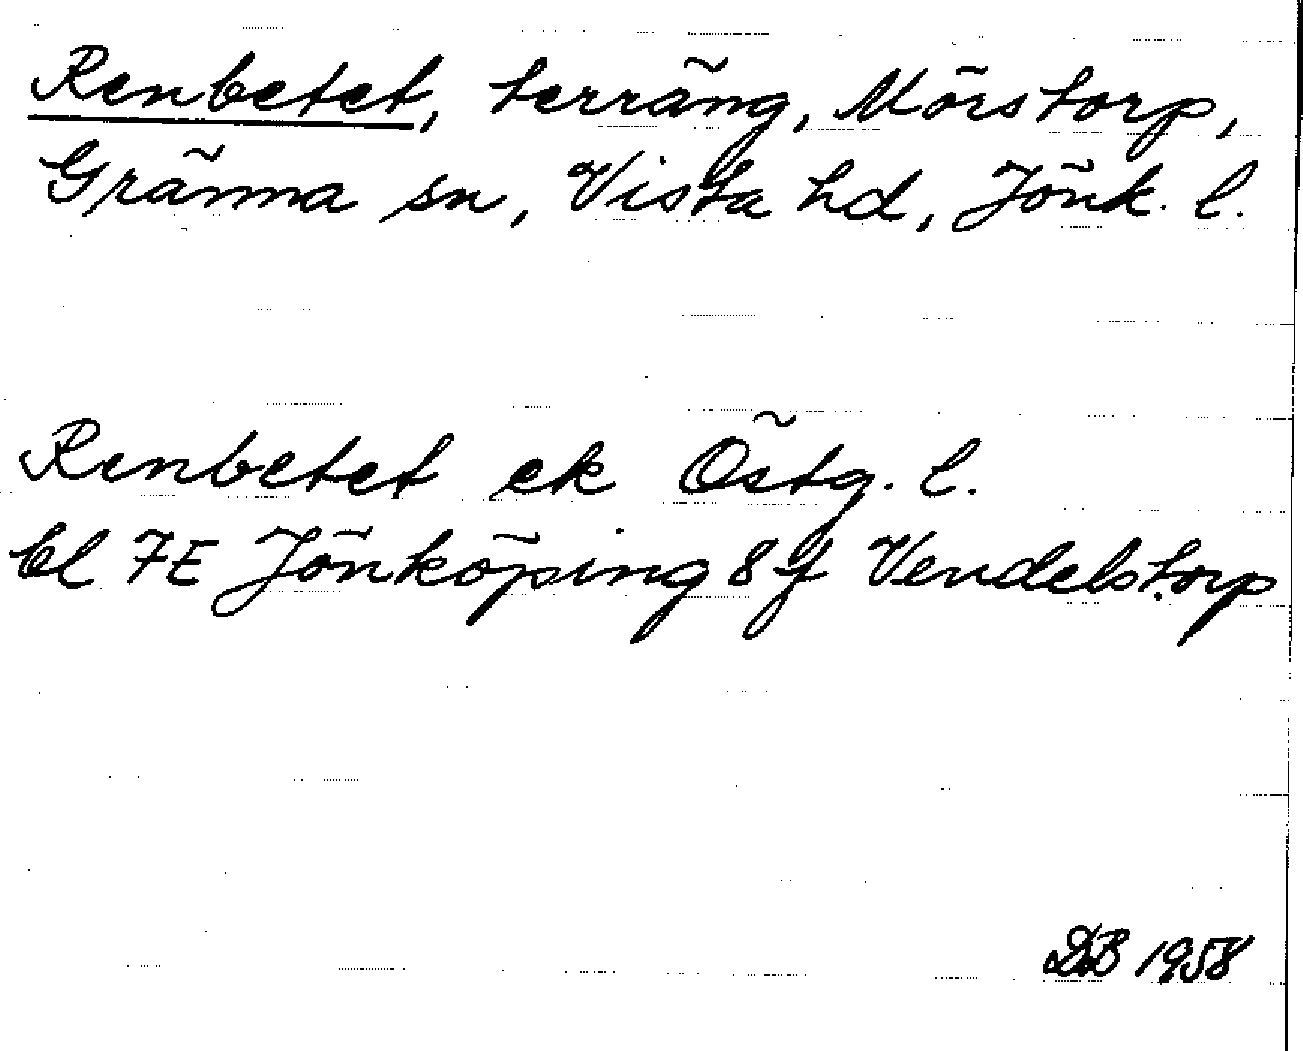 Renbetet, terräng, Mörstorp,
Gränna sn, Vista hd, Jönk. l.
Renbetet ek Östg. l.
bl 7E Jönköping 8 f Vendelstorp
DB 1958